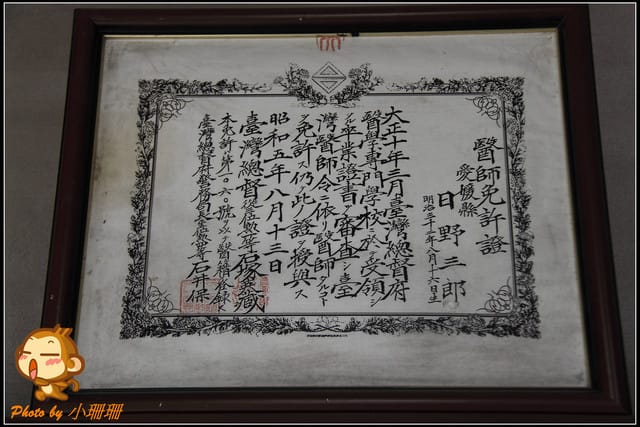 醫師免許證
愛媛縣
日野三郎
明治三十三年八月十六日生
大正十年三月臺灣總督府
醫學專門學校ニ於テ受領シ
タル卒業證書ヲ審査シ臺
灣醫師令ニ依リ醫師タルコト
ヲ免許ス仍テ此ノ證ヲ授與ス
昭和五年八月十三日
臺灣總督從三位勳一等石塚英藏
本免許ハ第一〇六〇號ヲ以テ醫籍ニ登錄ス
臺灣總督府警務局長 石井保
Photo by 小珊珊